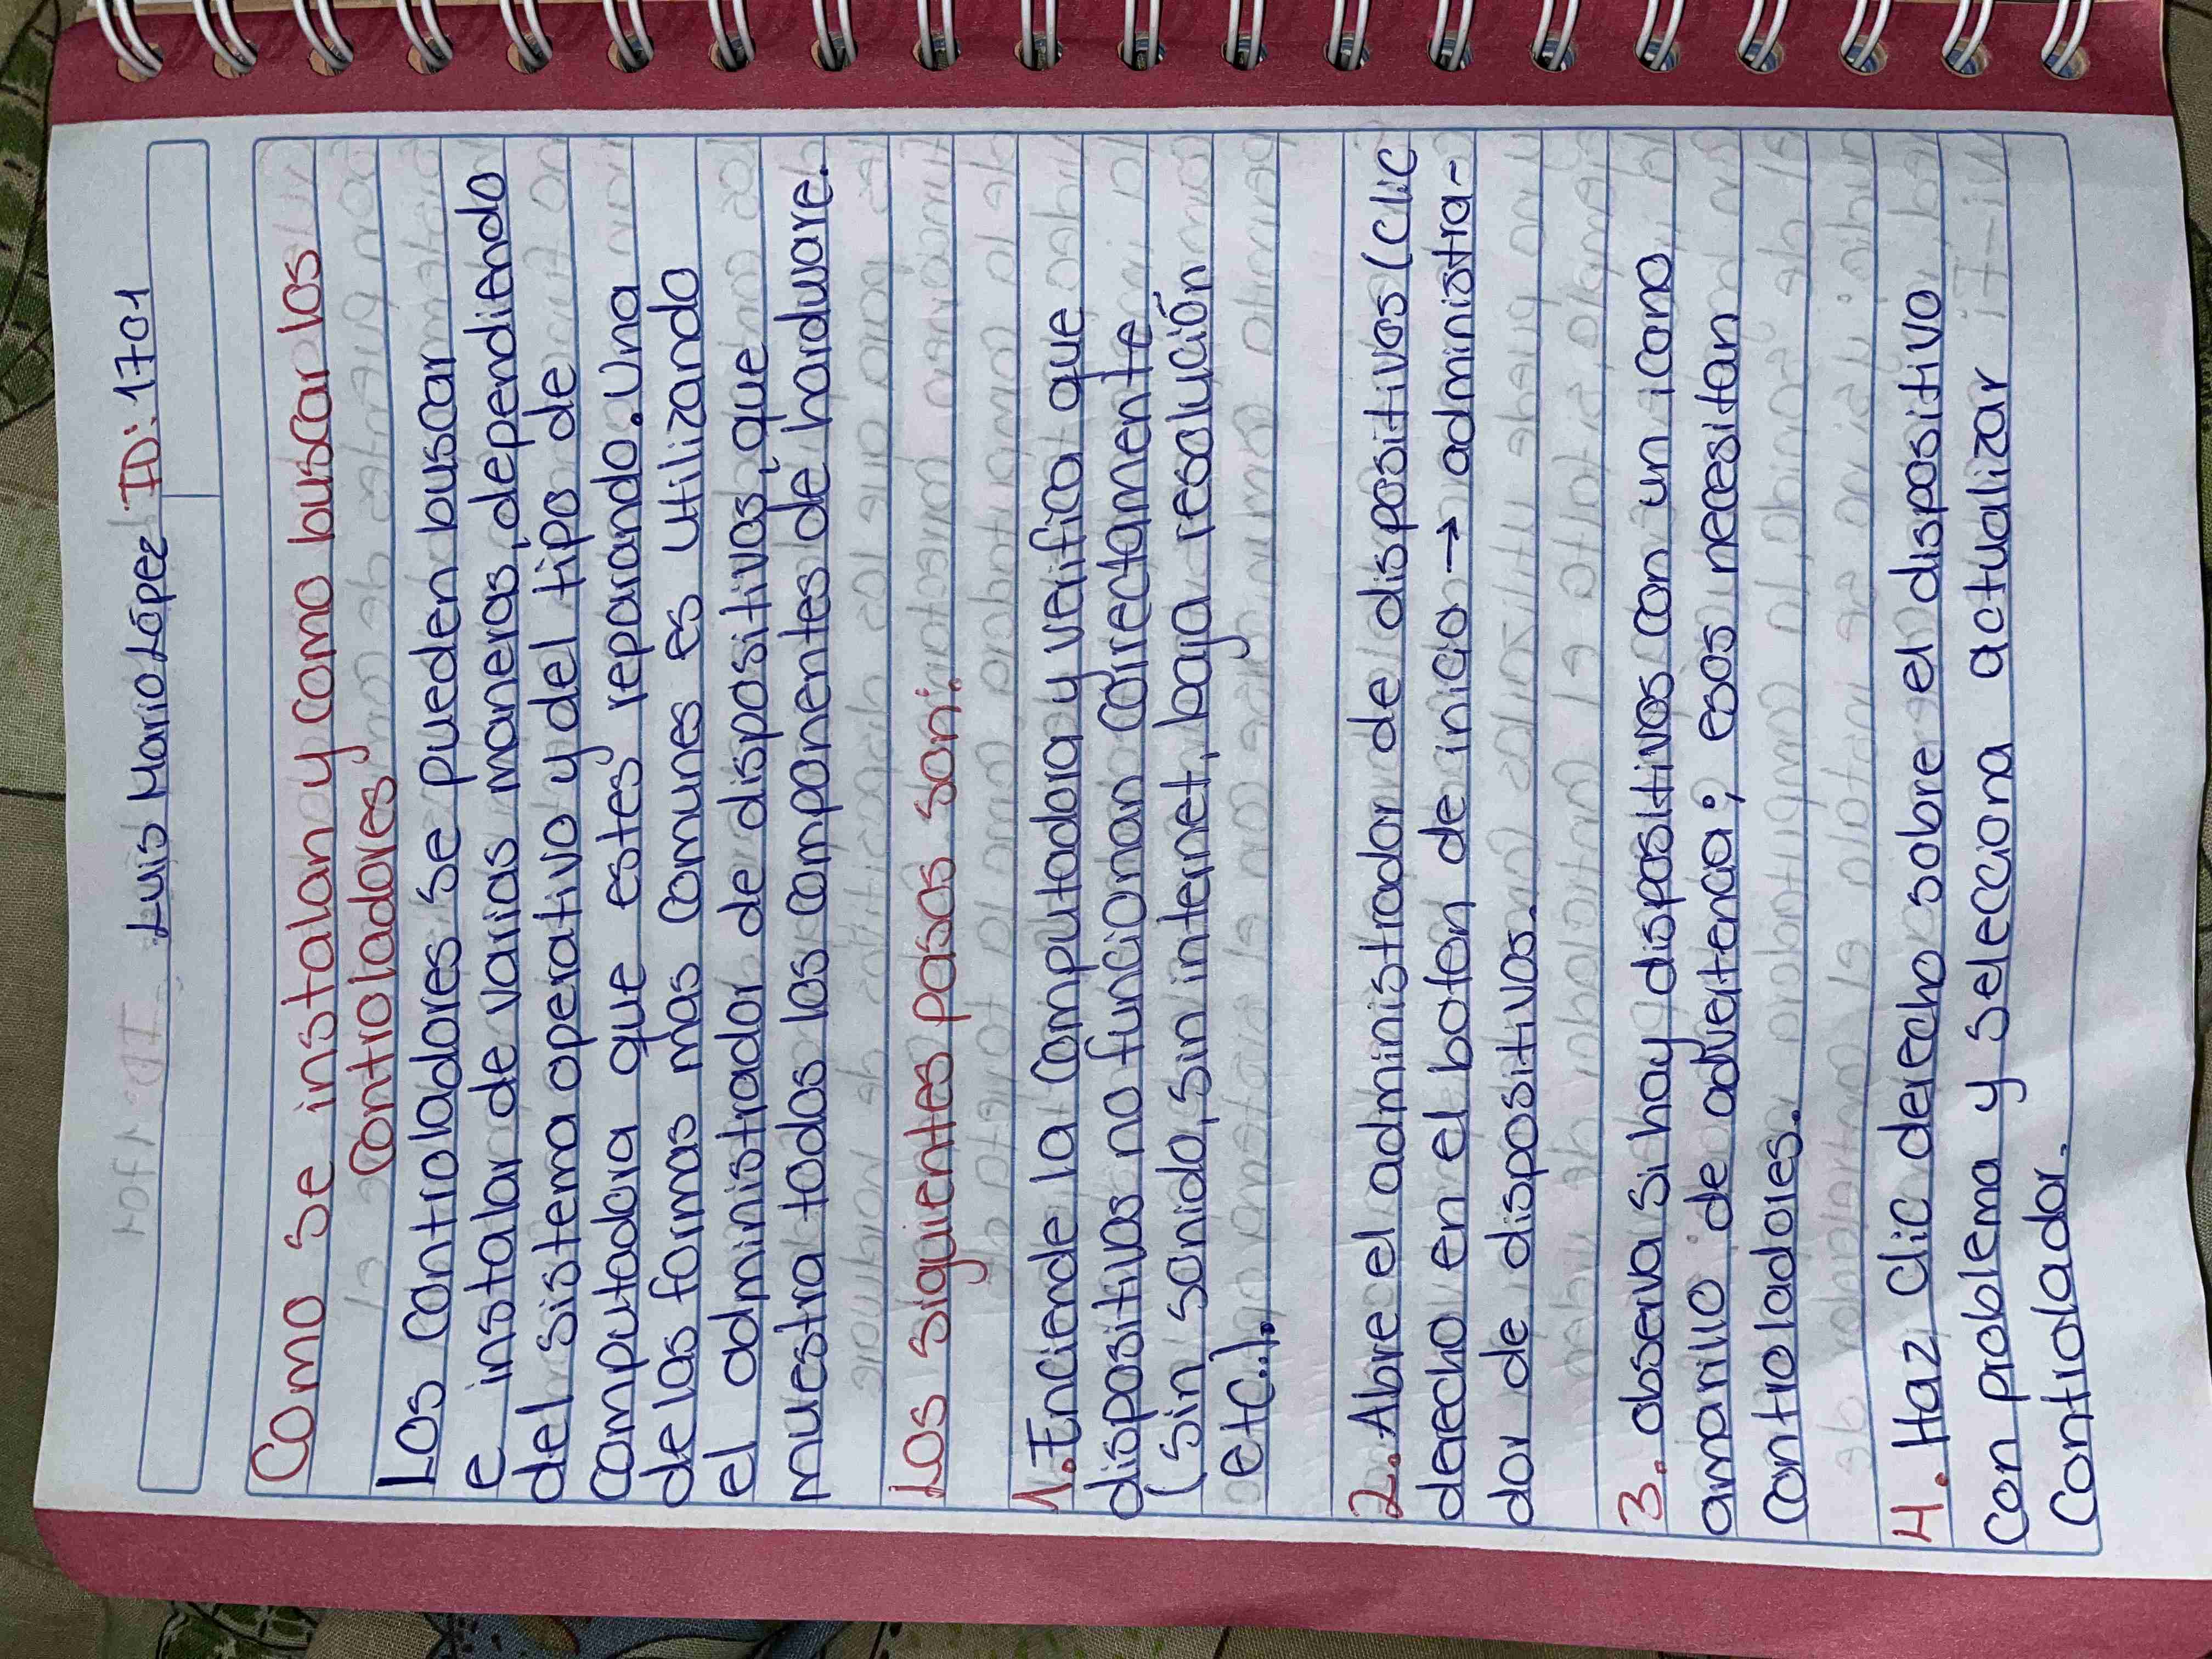 Luis Mario López ID: 1701
Como se instalan y como buscar los
controladores
Los controladores se pueden buscar
e instalar de varias maneras, dependiendo
del sistema operativo y del tipo de
computadora que estes reparando. Una
de las formas mas comunes es utilizando
el administrador de dispositivos, que
muestra todos los componentes de harduware.
Los siguientes pasos son:
1. Enciende la computadora y verifica que
dispositivos no funcionan correctamente
(sin sonido, sin internet, baja resolución
etc..).
2. Abre el administrador de dispositivos (clic
derecho en el boton de inicio → administra-
dor de dispositivos.
3. observa si hay dispositivos con un icono
amarillo de advertencia; esos necesitan
controladores.
4. Haz clic derecho sobre el dispositivo
con problema y selecciona actualizar
controlador.